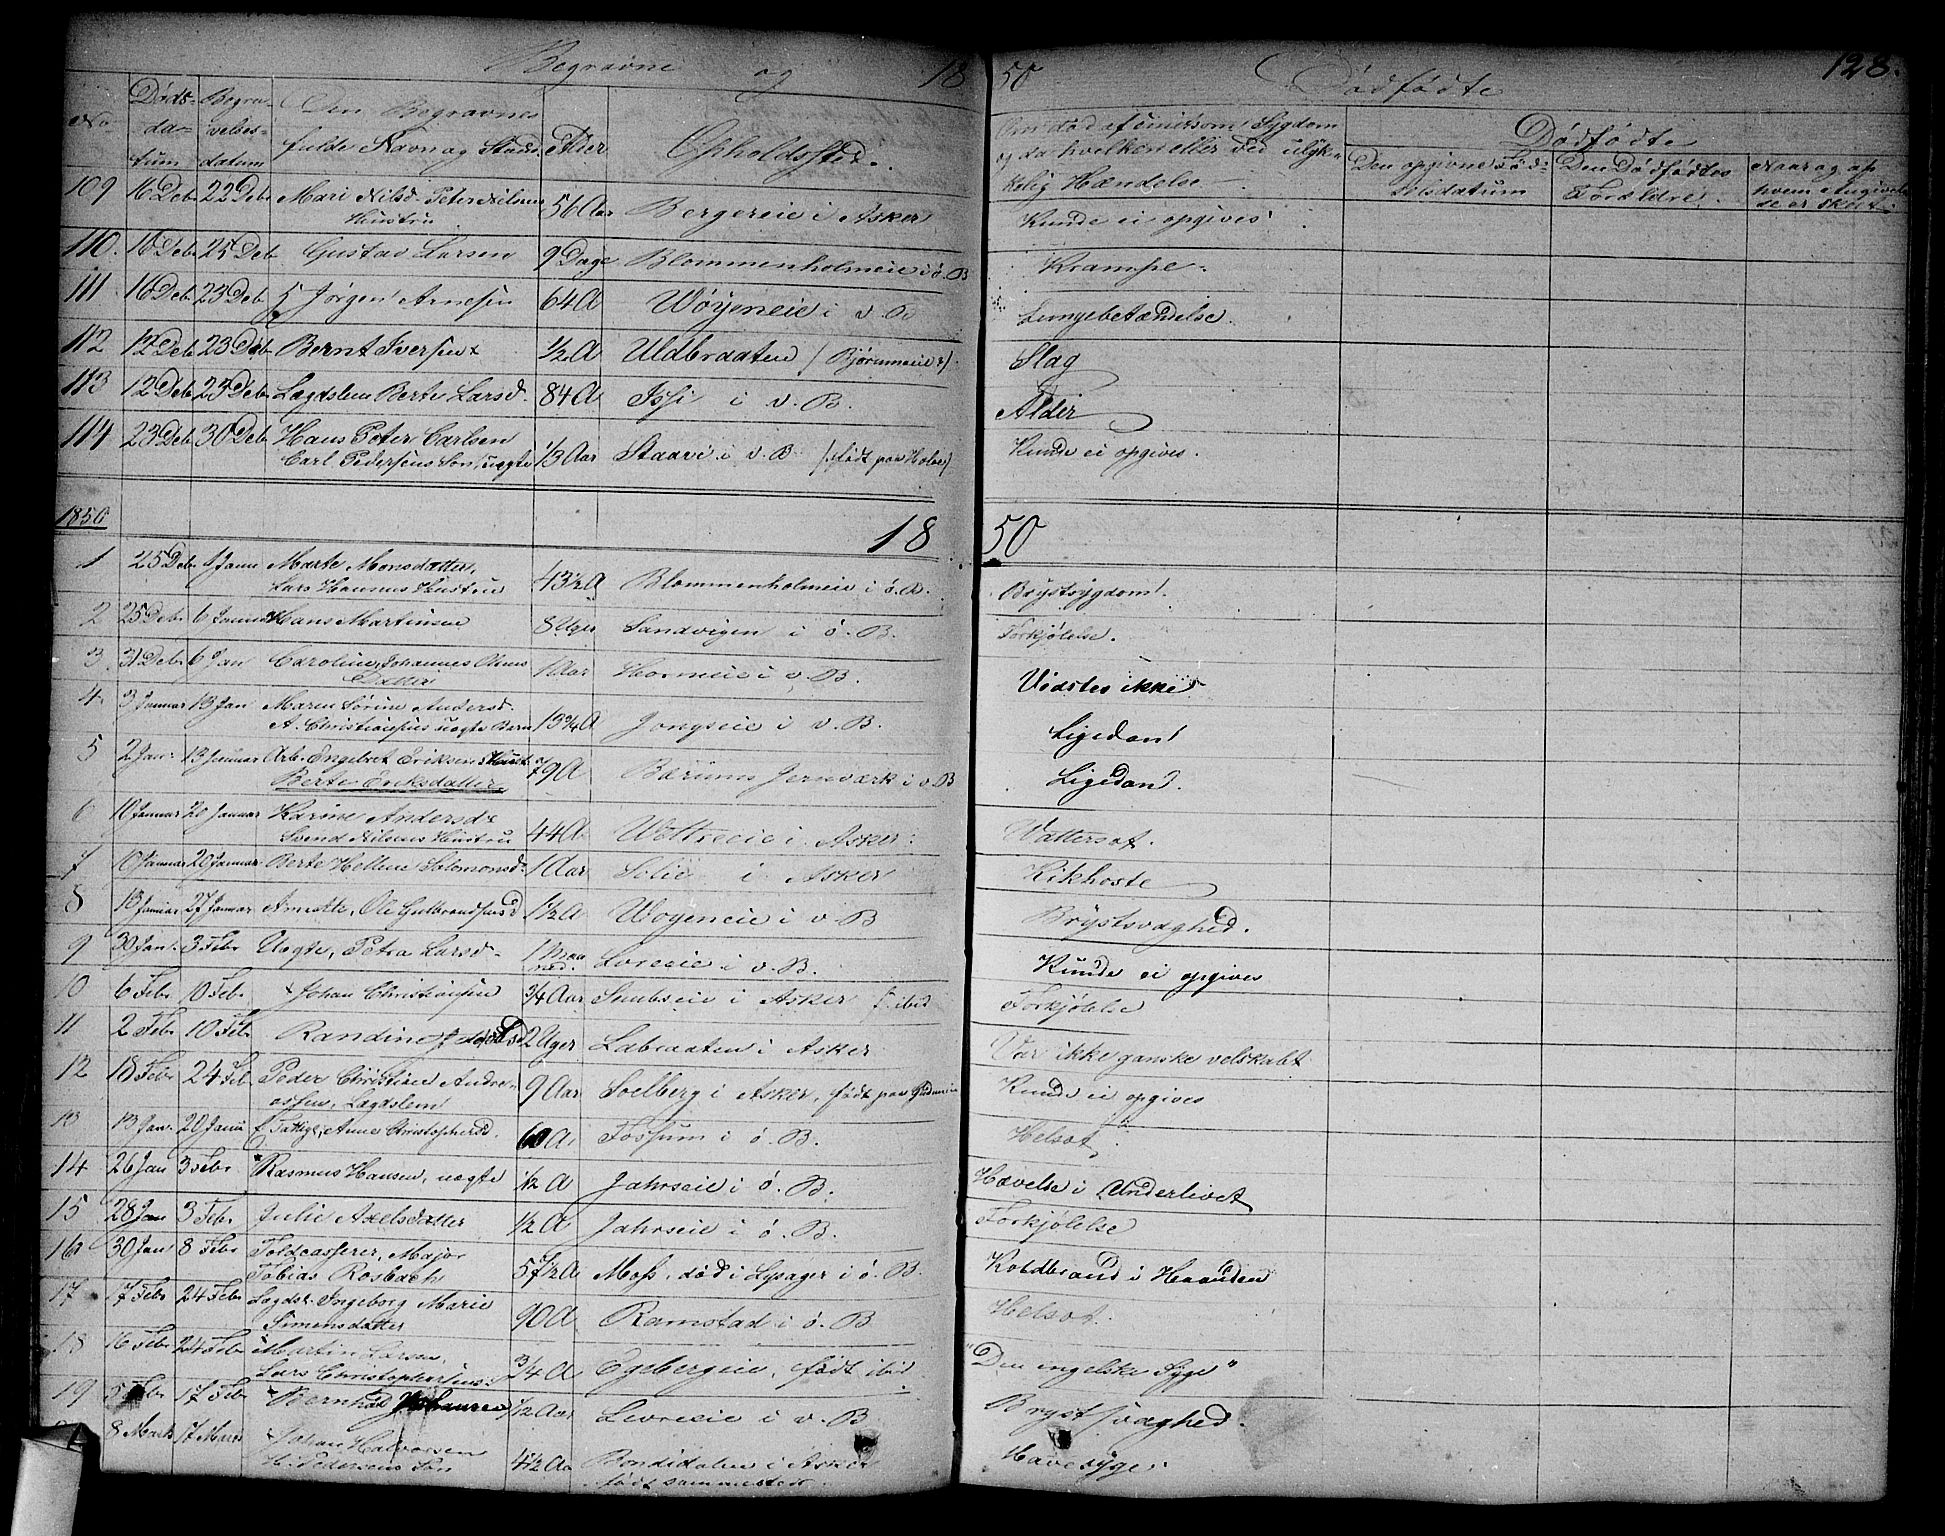 Begravne og 18 50 Dødfødte 128.
No Døds-datum Begravelses-datum Den Begravnes fulde Navn og Stand. Alder Opholdssted. Om død af smitsom Sygdom og da hvilken eller ved ulykkelig Hændelse. Dødfødte
Den opgivne Fødselsdatum Den Dødfødtes Forældre. Naar og af hvem Angivelse er skeet.
109 16 Deb 22 Deb Mari Nilsd. Peter Nilsens Hustru 56 Aar Bergereie i Asker Kunde ei opgives
110. 16 Deb 25 Deb Gustav Larsen 9 Dage Blommenholmeie i ø. B Krampe.
111 16 Deb 23 Deb Jørgen Arnesen 64 A Wøyeneie i v. B Lungebetændelse.
112 12 Deb 23 Deb Bernt Iversen x 1/2 A Uldbraaten / Bjørumeie / Slag
113 12 Deb 23 Deb Lægdslem Berte Larsd. 84 A Issi i v. B. Alder
114 23 Deb 30 Deb Hans Peter Carlsen
Carl Pedersens Søn uægte 1/3 Aar Staavi i v. B /: født paa / Kunde ei opgives.
1850 18 50
1 25 Deb 1 Janu Marte Monsdatter,
Lars Hansens Hustru 43 1/2 A Blommenholmeie i ø. B. Brystsygdom.
2 25 Deb 6 Januar Hans Martinsen 8 Uger Sandvigen i ø. B. Forkjølelse.
3 31 Deb 6 Jan Caroline, Johannes Olsens
Datter 1 Aar Horneie i v. B. Vidstes ikke
4 3 Januar 13 Jan Maren Sørine Andersd.
A. Christiansens uægte Barn 13 3/4 A Jongseie i v. B. Ligedan
5 2 Jan. 13 Januar Arb. Engebret Eriksens Hust.
Berte Eriksdatter 79 A Bærums Jernværk i v. B Ligedan.
6 10 Januar 20 Januar Karine Andersdr
Svend Nilsens Hustru 44 A Woltreeie i Asker. Wattersot.
7 10 Januar 20 Januar Berte Helline Salomonsd. 1 Aar Solie i Asker Kikhoste
8 13 Januar 27 Januar Annette, Ole Gulbrandsens D 1 1/2 A Woyeneie i v. B Brystsvaghed.
9 30 Jan. 3 Febr Uægte, Petra Larsd. 1 Maaned. Loreeie i v. B. Kunde ei opgives
10 6 Febr 10 Febr Johan Christiansen 3/4 Aar i Asker f. ibid Forkjølelse
11 2 Febr 10 Febr Randine 2 Uger Labraaten i Asker Var ikke ganske velskabt
12 18 Febr 24 Feb Peder Christian Andreassen, Lægdslem 9 Aar Solberg i Asker, født paa Kunde ei opgives
13 13 Jan. 20 Janu Fattige, Anne Christophersd. 60 A Fossum i ø. B. Helsot.
14 26 Jan 3 Febr Rasmus Hansen, uægte 1/2 A Jahrseie i ø. B. Hævelse i Underlivet
15 28 Jan 3 Febr Julie Axelsdatter 1/2 A Jahrseie i ø. B. Forkjølelse
16 30 Jan 8 Febr Toldcasserer, Major
Tobias Rosbach 57 1/2 A Moss, død i Lysager i ø. B. Koldbrand i Haanden
17 17 Febr 24 Febr Lægdsl. Ingeborg Marie
Simensdatter 90 A Ramstad i ø. B Helsot.
18 16 Febr 24 Febr Martin Larsen,
Lars Christophersens 3/4 A Egebergeie, født ibid "Den engelske Syge"
19 5 Febr 17 Febr Bernhard Johansen 1/12 Aar Levreeie i v. B Brystsvaghed.
8 Marts 17 Marts Johan Halvorsen
H. Pedersens Søn 4 1/2 Aar Bondidalen i Asker
født sammesteds. Havesyge.